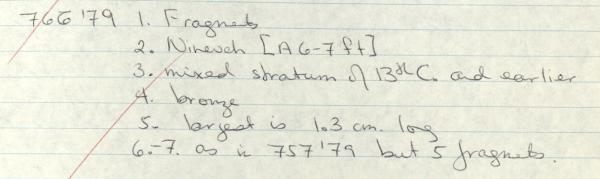 766'79 1. Fragnets
2. Nineveh [A 6-7 ft]
3. mixed stratum of 13th C. and earlier
4. bronze
5. largest is 1.3 cm. long
6.-7. as in 757'79 but 5 fragnets.